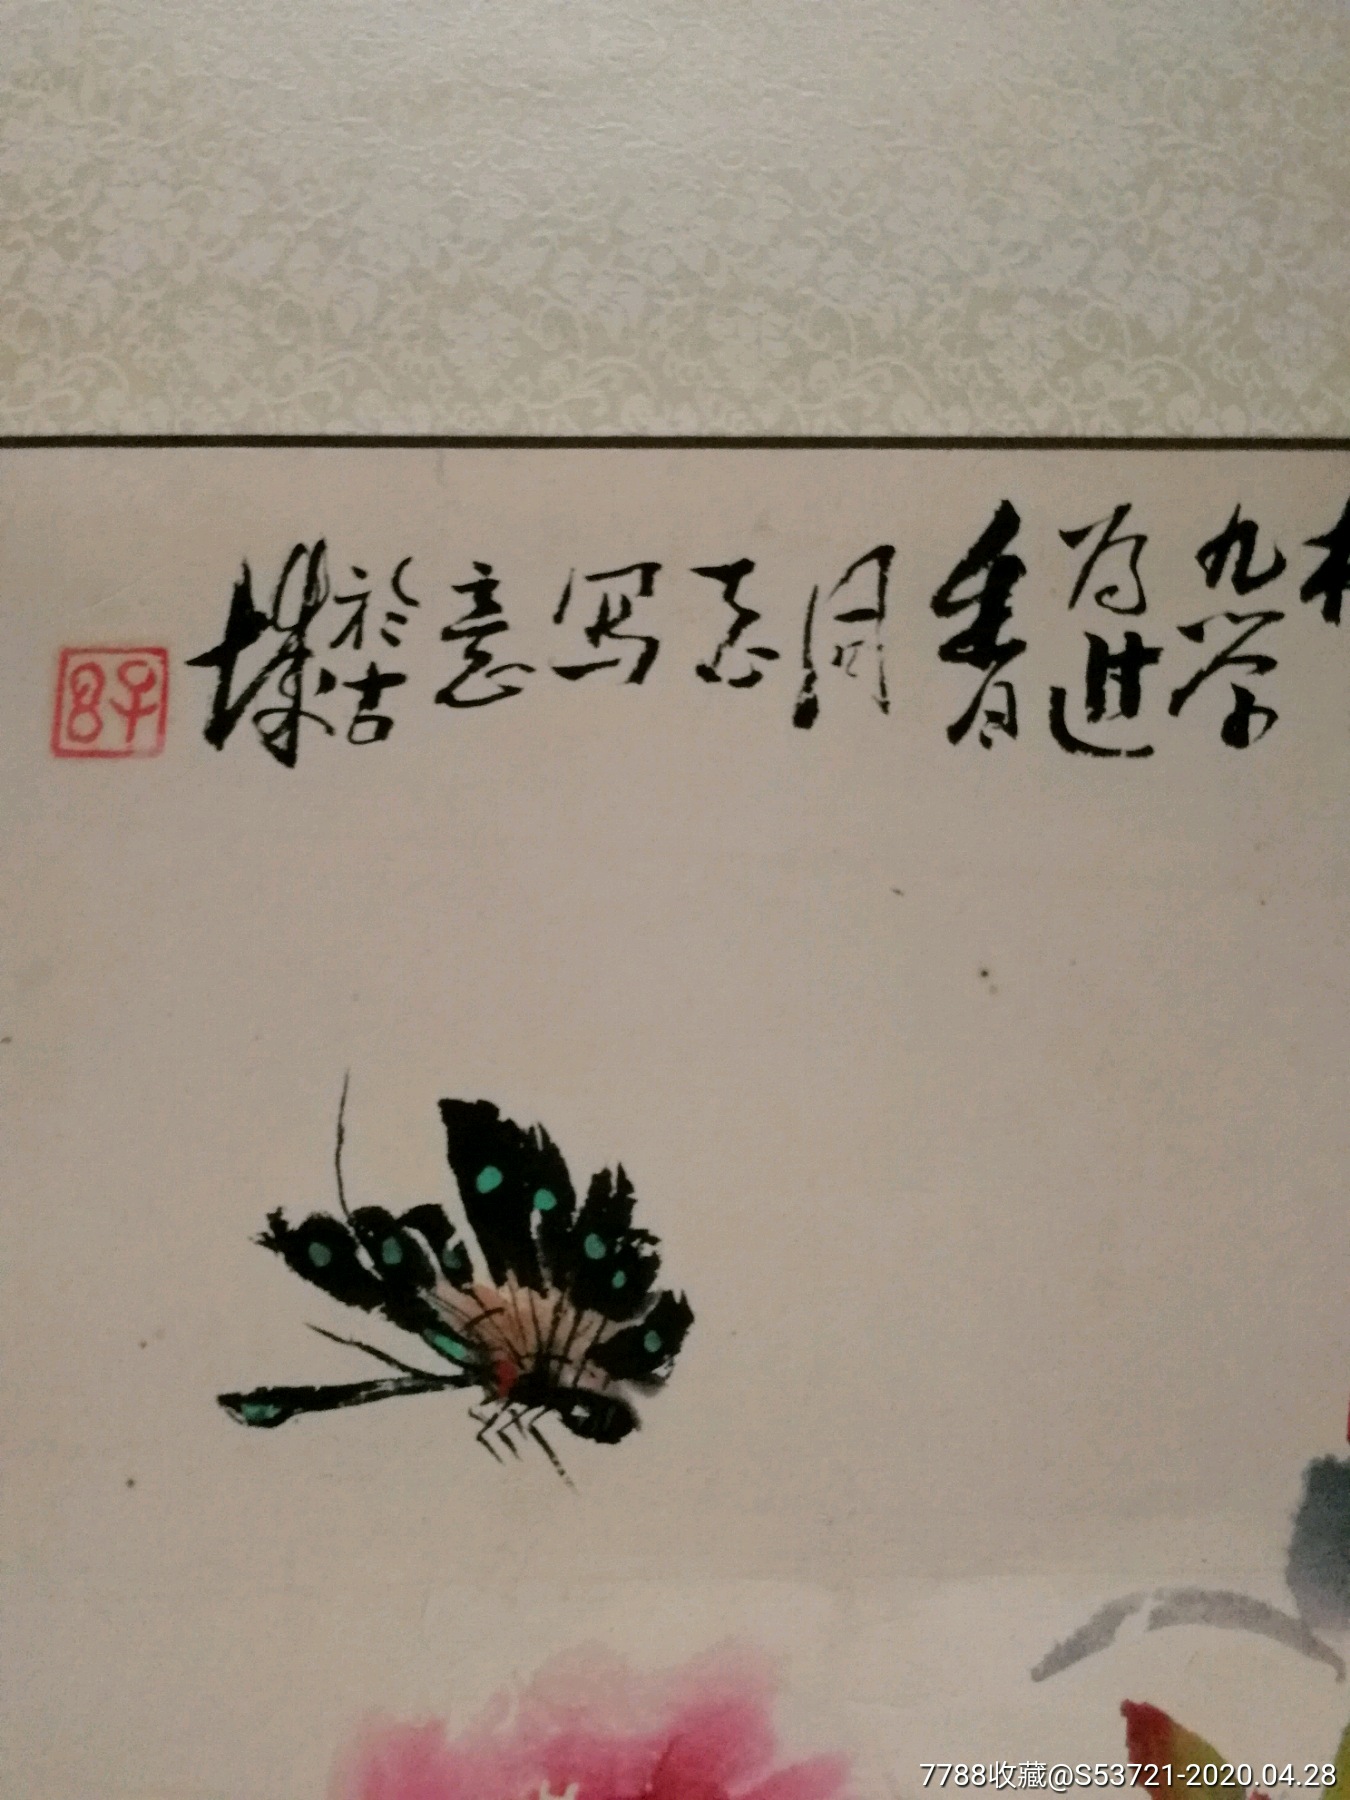 九学
为进
同
志
写
意
於古
城
7788收藏@S53721-2020.04.28